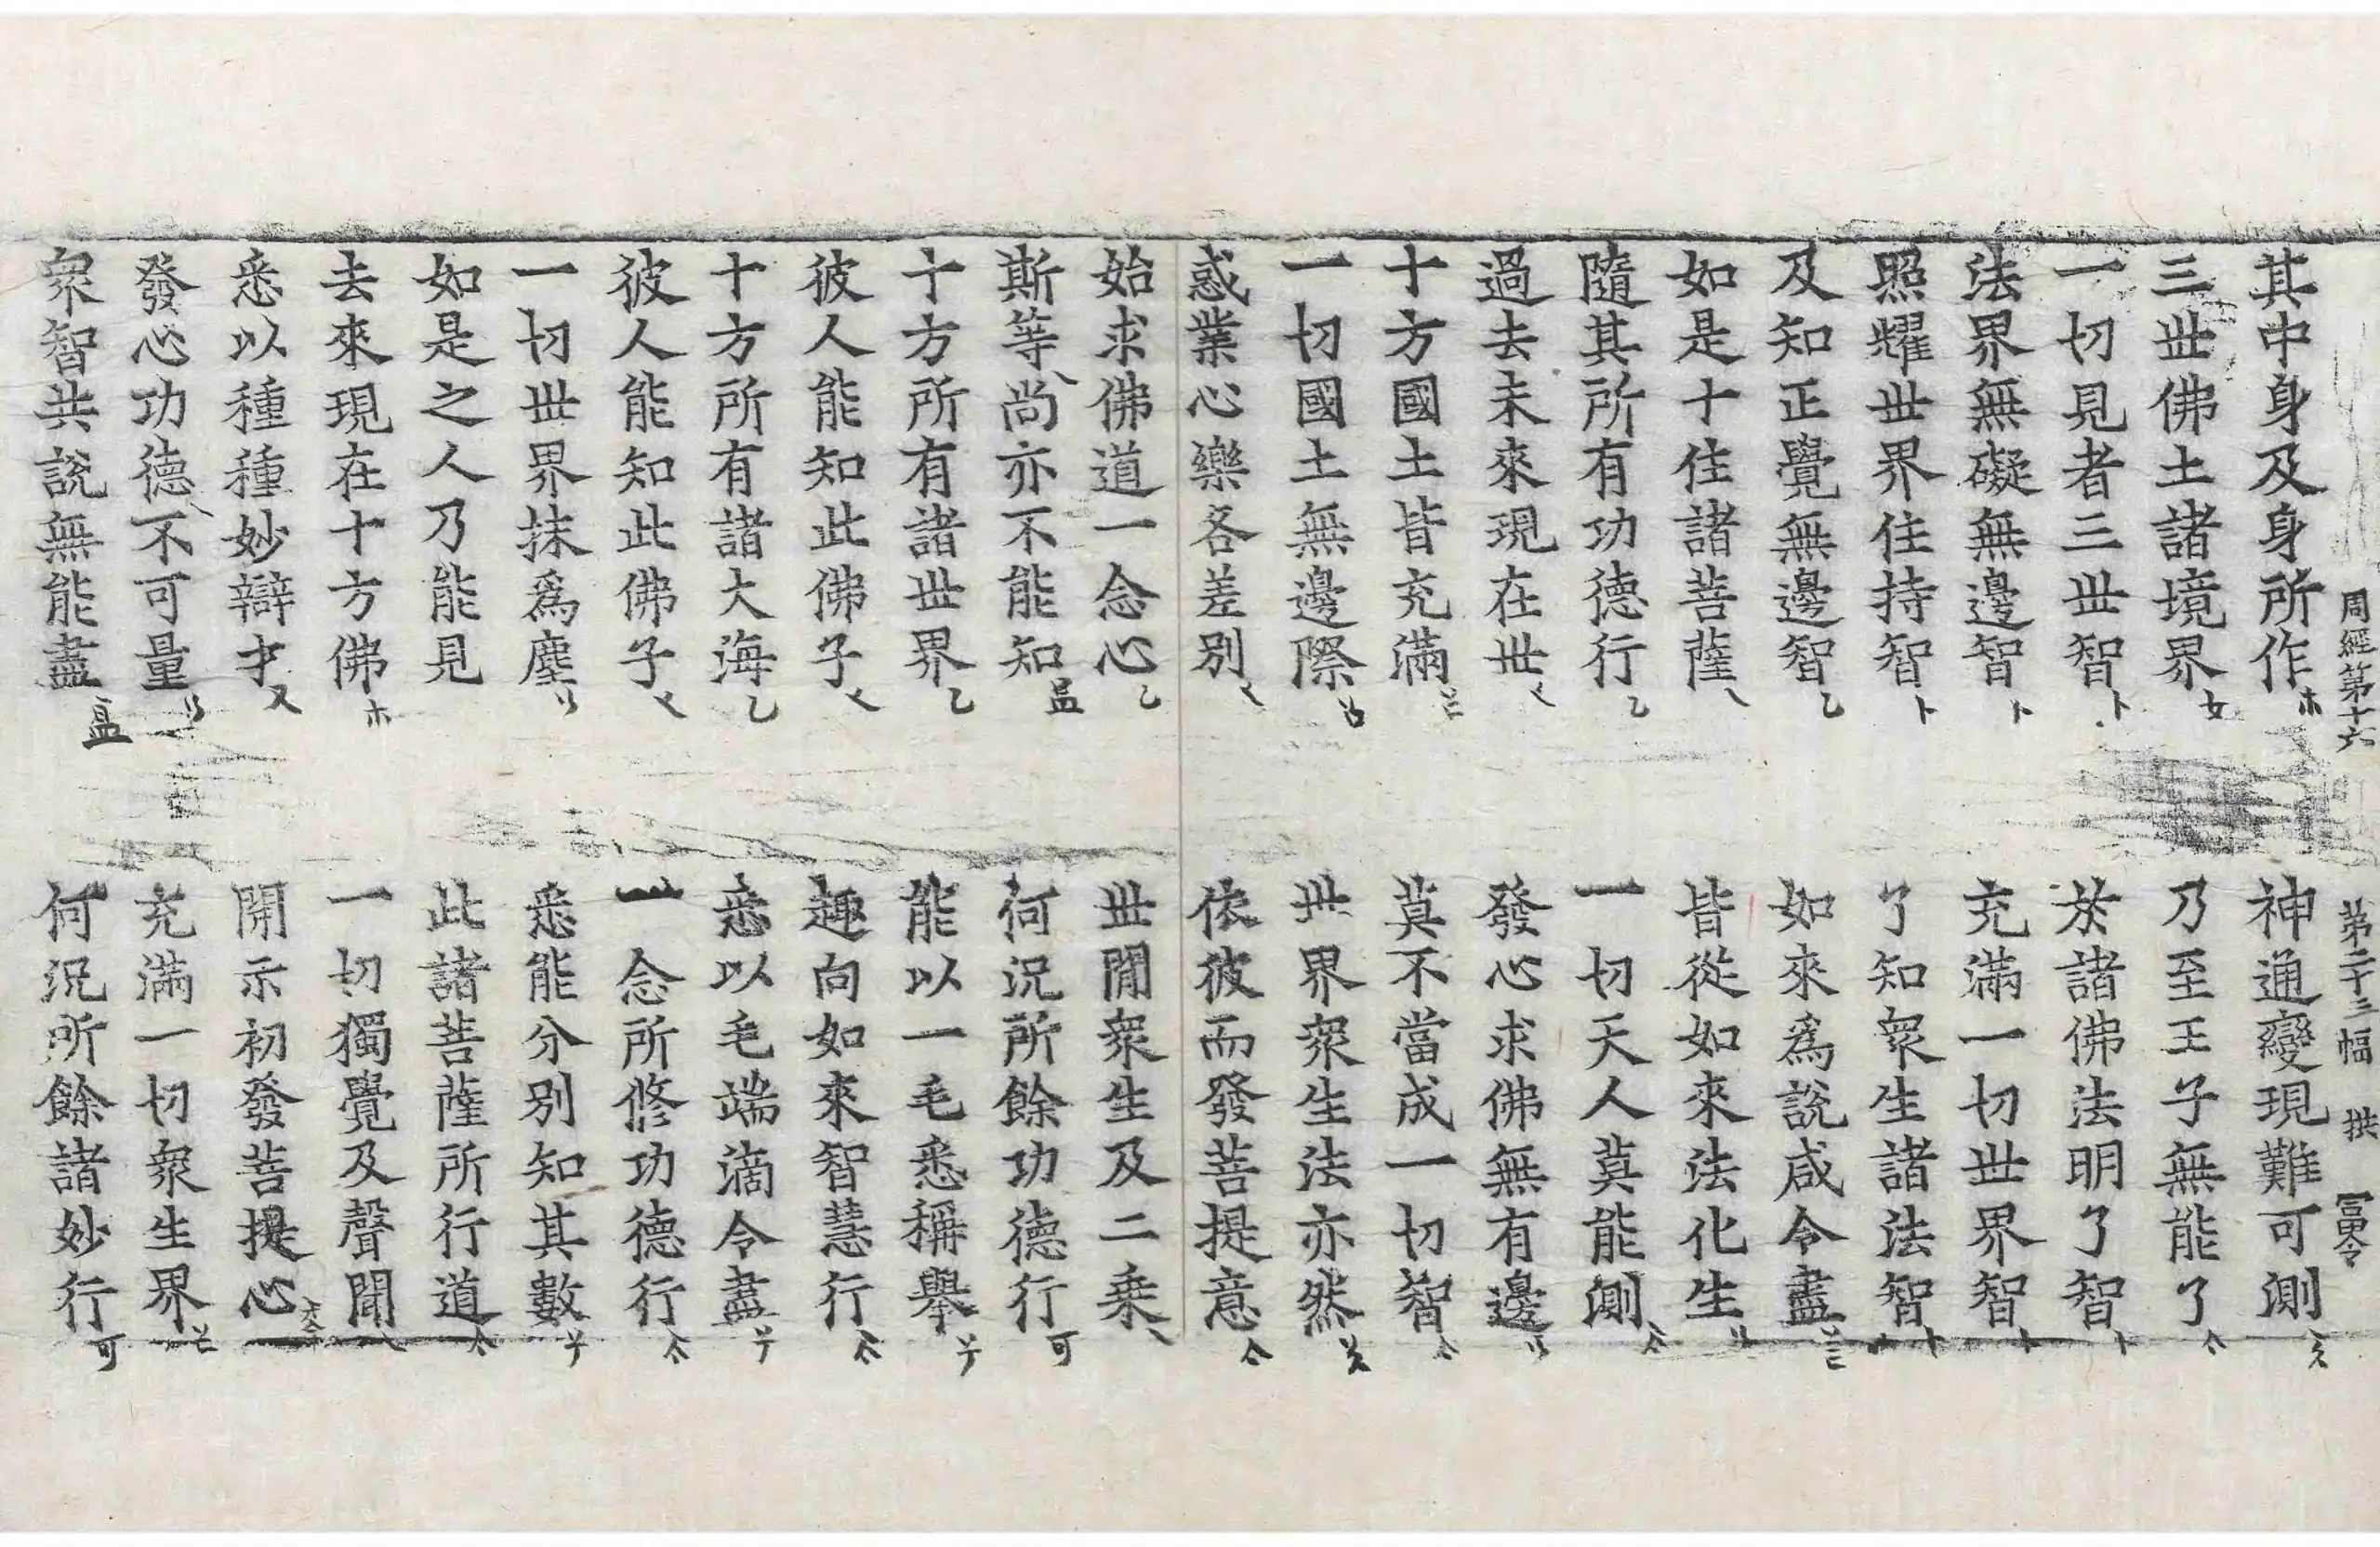 周經第十六 第二十三幅 拱
其中身及身所作 神通變現難可測
三世佛土諸境界 乃至王子無能了
一切見者三世智 於諸佛法明了智
法界無礙無邊智 充滿一切世界智
照耀世界住持智 了知衆生諸法智
及知正覺無邊智 如來爲說咸令盡
如是十住諸菩薩 皆從如來法化生
隨其所有功德行 一切天人莫能測
過去未來現在世 發心求佛無有邊
十方國土皆充滿 莫不當成一切智
一切國土無邊際 世界衆生法亦然
惑業心樂各差別 依彼而發菩提意
始求佛道一念心 世閒衆生及二乗
斯等尚亦不能知 何況所餘功德行
十方所有諸世界 能以一毛悉稱舉
彼人能知此佛子 趣向如來智慧行
十方所有諸大海 悉以毛端滴令盡
彼人能知此佛子 一念所修功德行
一切世界抹爲塵 悉能分別知其數
如是之人乃能見 此諸菩薩所行道
去來現在十方佛 一切獨覺及聲聞
悉以種種妙辯才 開示初發菩提心
發心功德不可量 充滿一切衆生界
衆智共說無能盡 何況所餘諸妙行